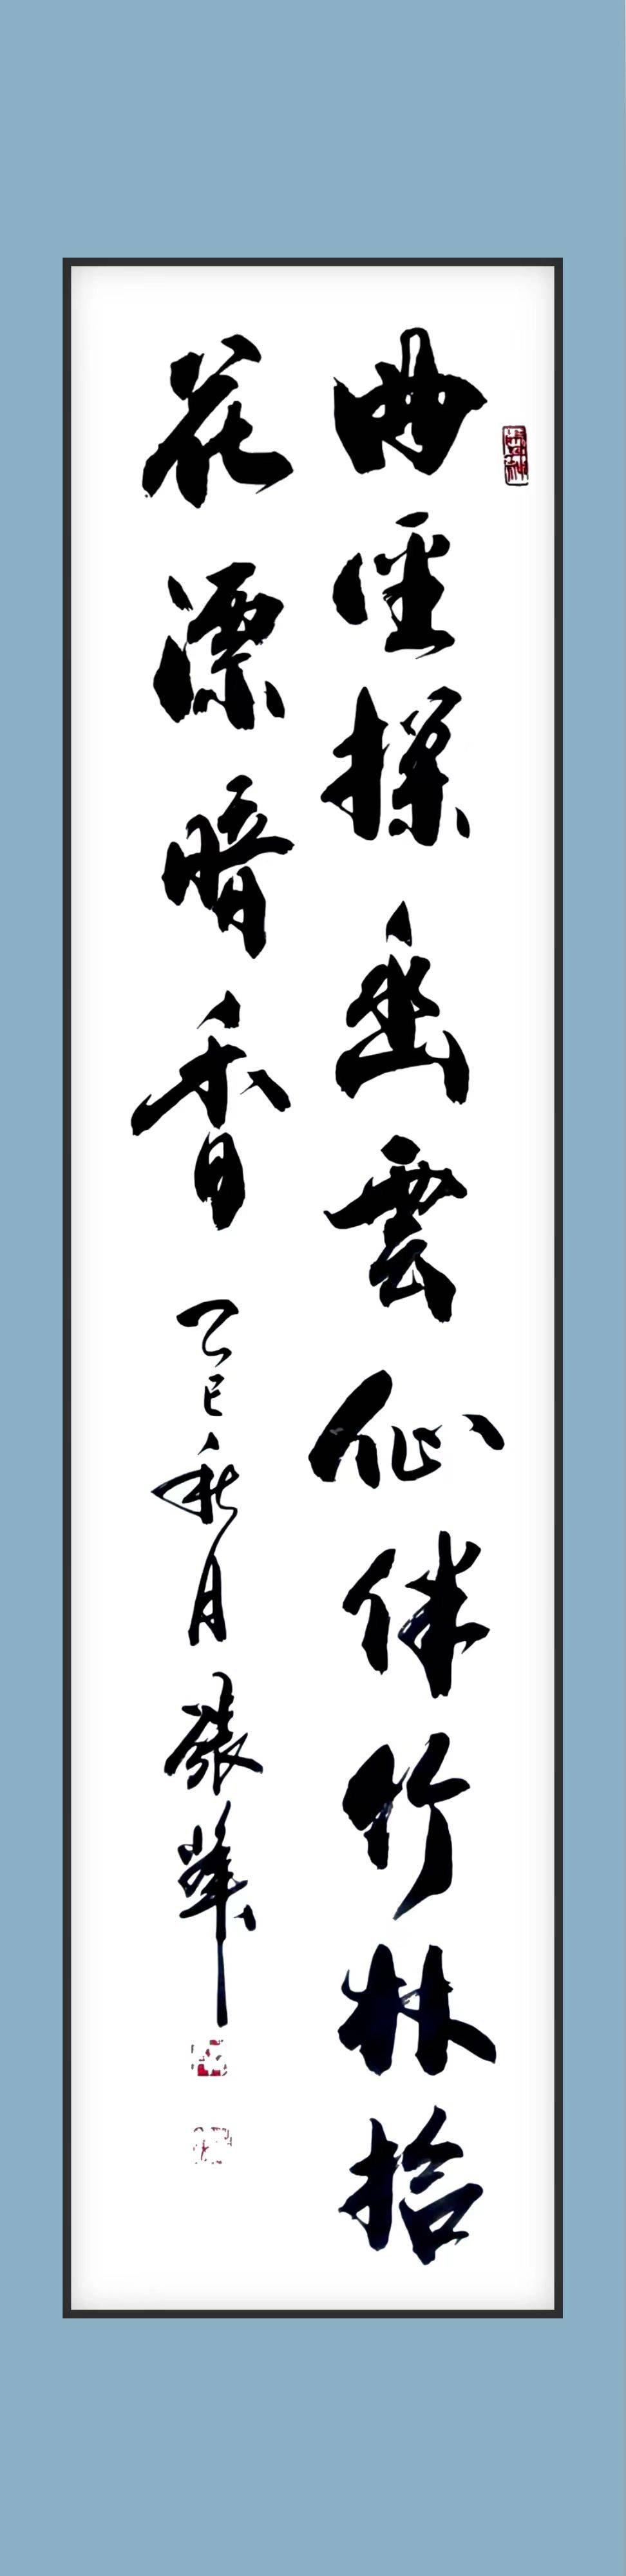 曲徑探幽雲伴竹林拾
花漂暗香 乙巳秋月 張華